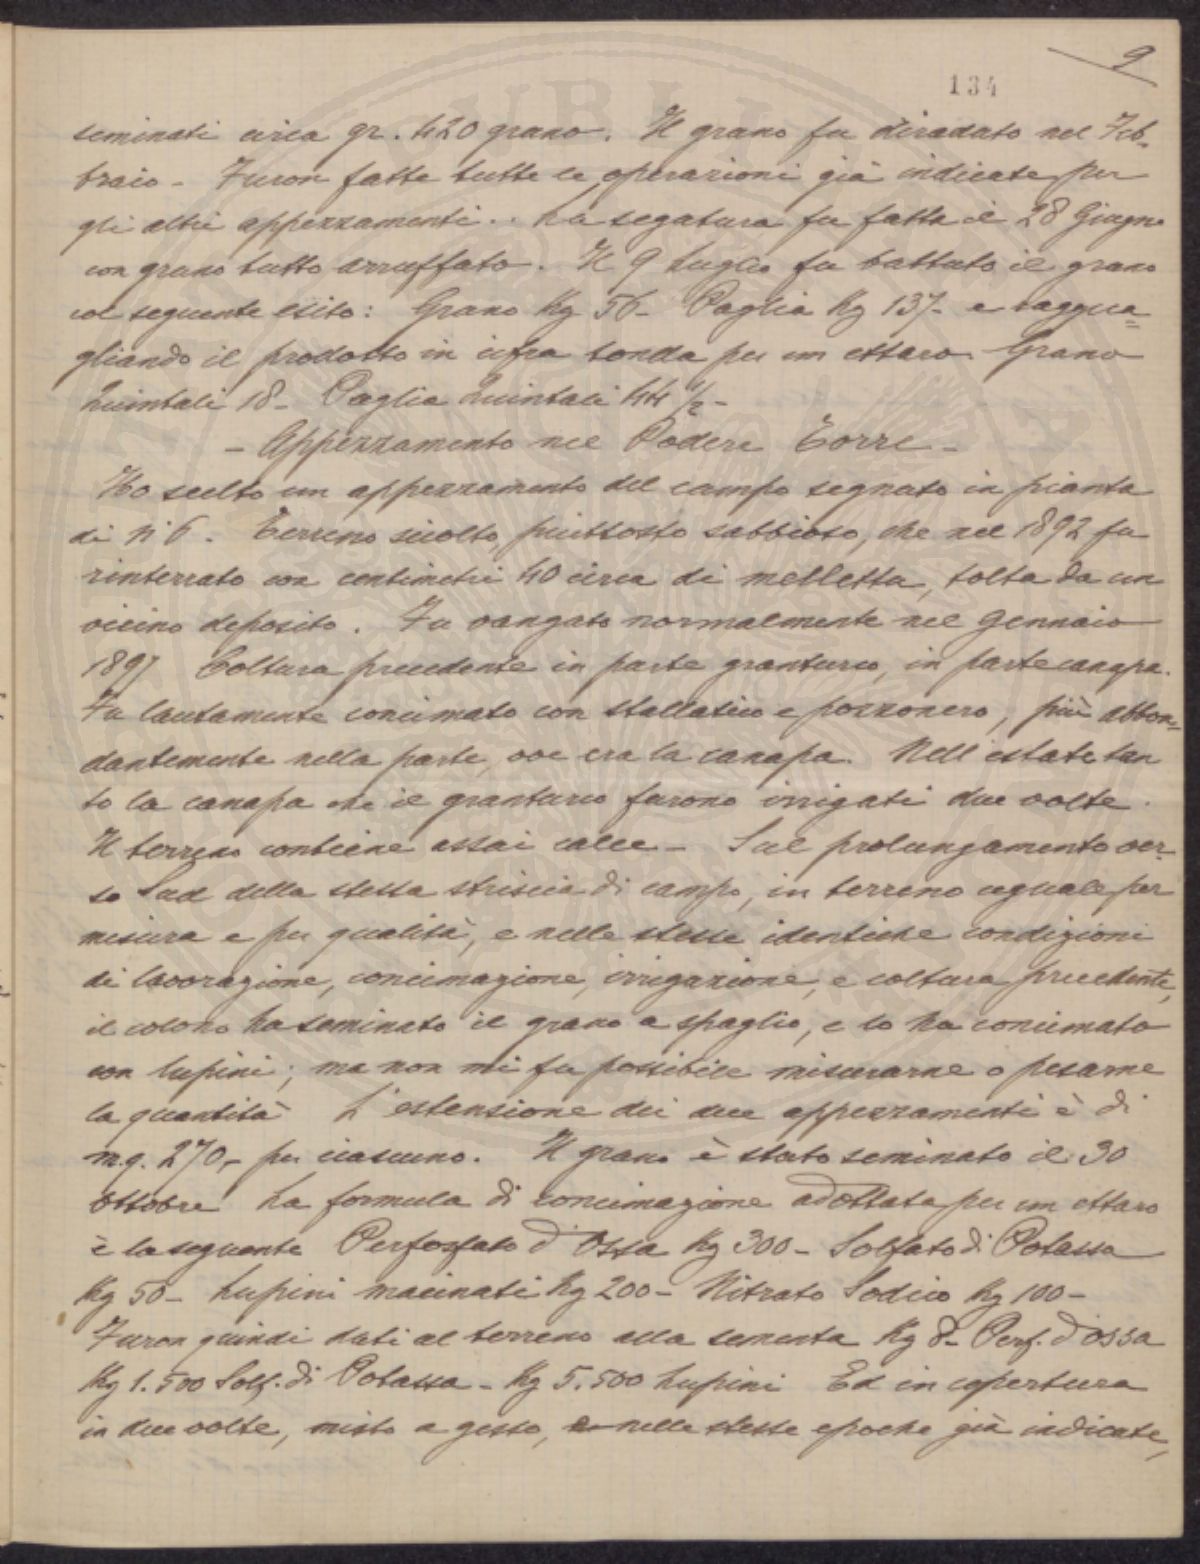 9
134
seminati circa gr. 420 grano. Il grano fu diradato nel Feb-
braio - Furon fatte tutte le operazioni già indicate per
gli altri appezzamenti. La segatura fu fatta il 28 Giugno
con grano tutto arruffato. Il 9 Luglio fu battuto il grano
col seguente esito: Grano Kg 56 - Paglia Kg 137 - e raggua=
gliando il prodotto in cifra tonda per un ettaro - Grano
Quintali 18 - Paglia Quintali 44 1/2 -
- Appezzamento nel Podere Torre -
Ho scelto un appezzamento del campo segnato in pianta
di N° 6. Terreno sciolto, piuttosto sabbioso, che nel 1892 fu
rinterrato con centimetri 40 circa di melletta, tolta da un
vicino deposito. Fu vangato normalmente nel Gennaio
1897 Coltura precedente in parte granturco, in parte canapa.
Fu lautamente concimato con stallatico e pozzonero, più abbon=
dantemente nella parte, ove era la canapa. Nell'estate tan
to la canapa che il granturco furono irrigati due volte.
Il terreno contiene assai calce - Sul prolungamento ver-
so Sud della stessa striscia di campo, in terreno uguale per
misura e per qualità, e nelle stesse identiche condizioni
di lavorazione, concimazione, irrigazione, e coltura precedente,
il colono ha seminato il grano a spaglio, e lo ha concimato
con lupini; ma non mi fu possibile misurarne o pesarne
la quantità L'estensione dei due appezzamenti è di
m.q. 270,- per ciascuno. Il grano è stato seminato il 30
Ottobre La formula di concimazione adottata per un ettaro
è la seguente Perfosfato d'Ossa Kg 300 - Solfato di Potassa
Kg 50 - Lupini macinati Kg 200 - Nitrato Sodico Kg 100 -
Furon quindi dati al terreno alla sementa Kg 8 - Perf. d'ossa
Kg 1.500 Solf. di Potassa - Kg 5.500 Lupini Ed in copertura
in due volte, misto a gesso, nelle stesse epoche già indicate,